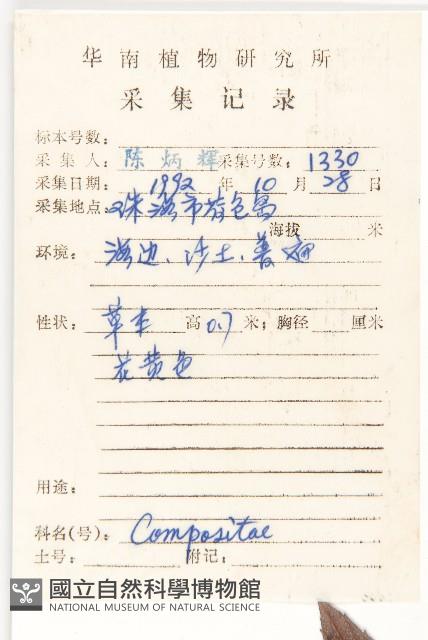 华南植物研究所
采集记录
标本号数:
采集人: 陈炳辉 采集号数: 1330
采集日期: 1992 年 10 月 28 日
采集地点: 珠海市
海拔 米
环境: 海边、沙土、普
性状: 草本 高 0.7 米; 胸径 厘米
花黄色
用途:
科名(号): Compositae
土号: 附记:
國立自然科學博物館
NATIONAL MUSEUM OF NATURAL SCIENCE